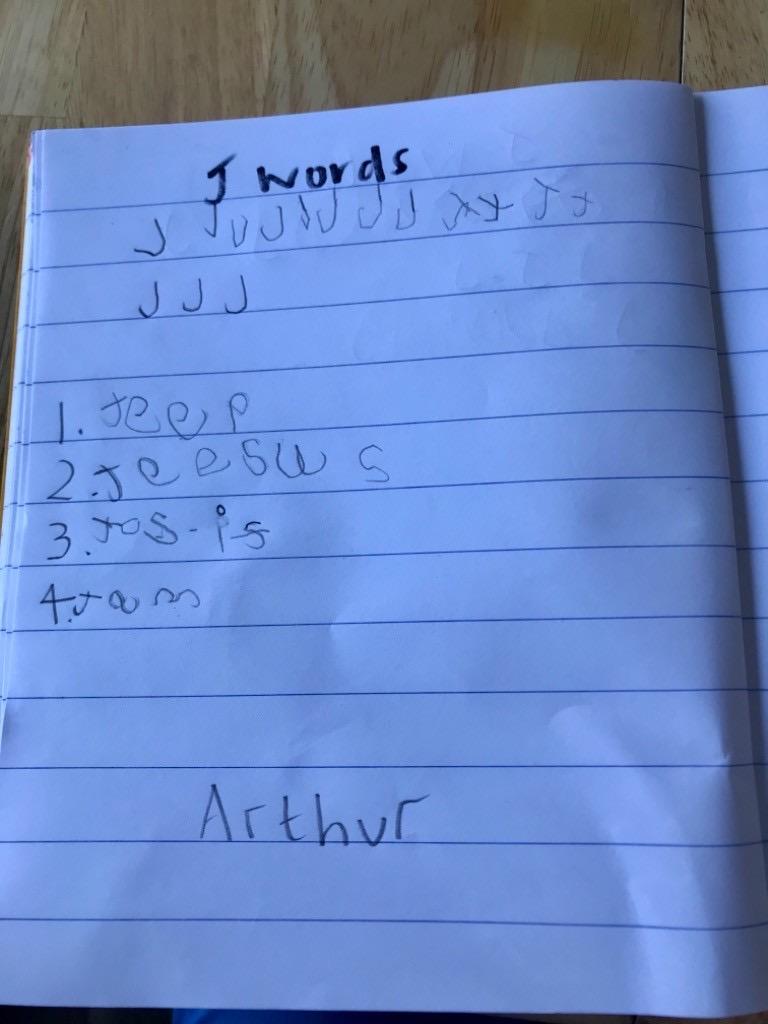 J words
J J J J J J J J J J J J J
J J J
1. Jeep
2. Jeesus
3. Jos-is
4. Jam
Arthur